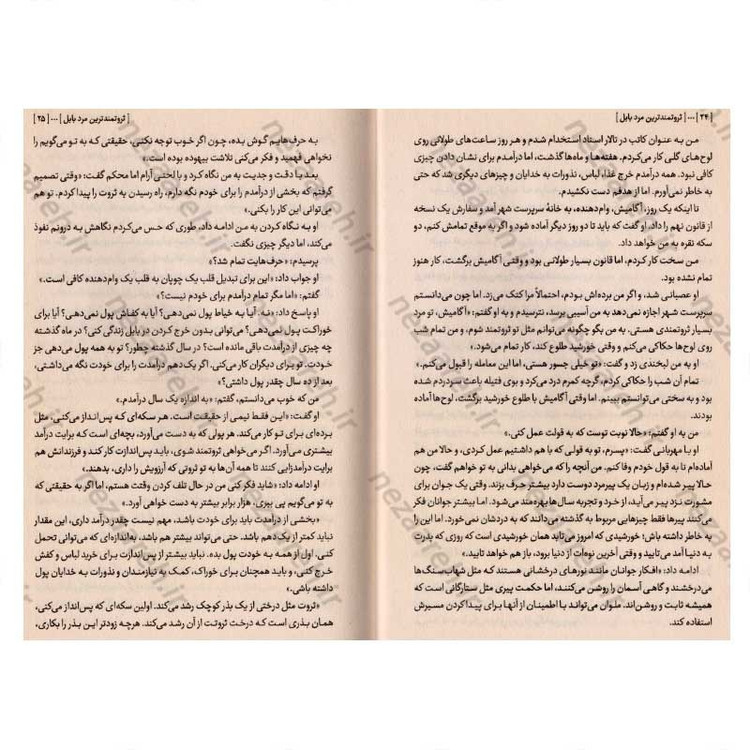 [ ۲۴ ] ... [ ثروتمندترین مرد بابل ]
من به عنوان کاتب در تالار اسناد استخدام شدم و هر روز ساعت‌های طولانی روی
لوح‌های گلی کار می‌کردم. هفته‌ها و ماه‌ها گذشت، اما درآمدم برای نشان دادن چیزی
کافی نبود. همه درآمدم خرج غذا، لباس، نذورات به خدایان و چیزهای دیگری شد که حتی
به خاطر نمی‌آورم. اما از هدفم دست نکشیدم.
تا اینکه یک روز، آگامیش، وام‌دهنده، به خانهٔ سرپرست شهر آمد و سفارش یک نسخه
از قانون نهم را داد. او گفت که باید تا دو روز دیگر آماده شود و اگر به موقع تمامش کنم، دو
سکه نقره به من خواهد داد.
من سخت کار کردم، اما قانون بسیار طولانی بود و وقتی آگامیش برگشت، کار هنوز
تمام نشده بود.
او عصبانی شد، و اگر من برده‌اش بودم، احتمالاً مرا کتک می‌زد. اما چون می‌دانستم
سرپرست شهر اجازه نمی‌دهد به من آسیبی برسد، نترسیدم و به او گفتم: «آگامیش، تو مرد
بسیار ثروتمندی هستی. به من بگو چگونه می‌توانم مثل تو ثروتمند شوم، و من تمام شب
روی لوح‌ها حکاکی می‌کنم و وقتی خورشید طلوع کند، کار تمام می‌شود.»
او به من لبخندی زد و گفت: «تو خیلی جسور هستی، اما این معامله را قبول می‌کنم.»
تمام آن شب را حکاکی کردم، گرچه کمرم درد می‌کرد و بوی فتیله باعث سردردم شده
بود و به سختی می‌توانستم ببینم. اما وقتی آگامیش با طلوع خورشید برگشت، لوح‌ها آماده
بودند.
من به او گفتم: «حالا نوبت توست که به قولت عمل کنی.»
او با مهربانی گفت: «پسرم، تو به قولی که با هم داشتیم عمل کردی، و حالا من هم
آماده‌ام تا به قول خودم وفا کنم. من آنچه را که می‌خواهی بدانی به تو خواهم گفت، چون
حالا پیر شده‌ام و زبان یک پیرمرد دوست دارد بیشتر حرف بزند. وقتی یک جوان برای
مشورت نزد پیر می‌آید، از خرد و تجربه سال‌ها بهره‌مند می‌شود. اما بیشتر جوانان فکر
می‌کنند پیرها فقط چیزهایی مربوط به گذشته می‌دانند که به دردشان نمی‌خورد. اما این را
به خاطر داشته باش: خورشیدی که امروز می‌تابد همان خورشیدی است که روزی که پدرت
به دنیا آمد می‌تابید و وقتی آخرین نوه‌ات از دنیا برود، باز هم خواهد تابید.»
ادامه داد: «افکار جوانان مانند نورهای درخشانی هستند که مثل شهاب‌سنگ‌ها
می‌درخشند و گاهی آسمان را روشن می‌کنند، اما حکمت پیری مثل ستارگانی است که
همیشه ثابت و روشن‌اند. ملوان می‌تواند با اطمینان از آنها برای پیدا کردن مسیرش
استفاده کند.
[ ثروتمندترین مرد بابل ] ... [ ۲۵ ]
به حرف‌هایم گوش بده، چون اگر خوب توجه نکنی، حقیقتی که به تو می‌گویم را
نخواهی فهمید و فکر می‌کنی تلاشت بیهوده بوده است.»
بعد با دقت و جدیت به من نگاه کرد و با لحنی آرام اما محکم گفت: «وقتی تصمیم
گرفتم که بخشی از درآمدم را برای خودم نگه دارم، راه رسیدن به ثروت را پیدا کردم. تو هم
می‌توانی این کار را بکنی.»
او به نگاه کردن به من ادامه داد، طوری که حس می‌کردم نگاهش به درونم نفوذ
می‌کند، اما دیگر چیزی نگفت.
پرسیدم: «حرف‌هایت تمام شد؟»
او جواب داد: «این برای تبدیل قلب یک چوپان به قلب یک وام‌دهنده کافی است.»
گفتم: «اما مگر تمام درآمدم برای خودم نیست؟»
او پاسخ داد: «نه. آیا به خیاط پول نمی‌دهی؟ آیا به کفاش پول نمی‌دهی؟ آیا برای
خوراکت پول نمی‌دهی؟ می‌توانی بدون خرج کردن در بابل زندگی کنی؟ در ماه گذشته
چه چیزی از درآمدت باقی مانده است؟ در سال گذشته چطور؟ تو به همه پول می‌دهی جز
خودت. تو برای دیگران کار می‌کنی. اگر یک‌دهم درآمدت را برای خودت نگه می‌داشتی،
بعد از ده سال چقدر پول داشتی؟»
من که خوب می‌دانستم، گفتم: «به اندازه یک سال درآمدم.»
او گفت: «این فقط نیمی از حقیقت است. هر سکه‌ای که پس‌انداز می‌کنی، مثل
برده‌ای برای تو کار می‌کند. هر پولی که به دست می‌آورد، بچه‌ای است که برایت درآمد
بیشتری می‌آورد. اگر می‌خواهی ثروتمند شوی، باید پس‌اندازت کار کند و فرزندانش هم
برایت درآمدزایی کنند تا همه آن‌ها به تو ثروتی که آرزویش را داری، بدهند.»
او ادامه داد: «شاید فکر کنی من در حال تلف کردن وقتت هستم، اما اگر به حقیقتی که
به تو می‌گویم پی ببری، هزار برابر بیشتر به دست خواهی آورد.»
«بخشی از درآمدت باید برای خودت باشد، مهم نیست چقدر درآمد داری، این مقدار
نباید کمتر از یک دهم باشد. حتی می‌تواند بیشتر هم باشد، به‌اندازه‌ای که می‌توانی تحمل
کنی. اول از همه به خودت پول بده. نباید بیشتر از پس‌اندازت برای خرید لباس و کفش
خرج کنی، و باید همچنان برای خوراک، کمک به نیازمندان و نذورات به خدایان پول
داشته باشی.»
«ثروت مثل درختی از یک بذر کوچک رشد می‌کند. اولین سکه‌ای که پس‌انداز می‌کنی،
همان بذری است که درخت ثروتت از آن رشد می‌کند. هرچه زودتر این بذر را بکاری،
nezaareh.ir